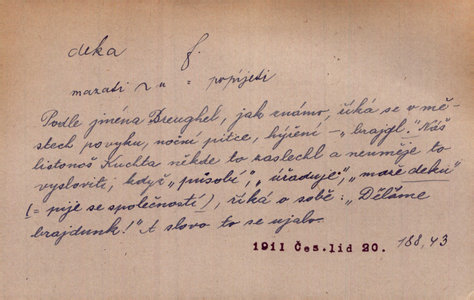 deka f.
mazati ~u = popíjeti
Podle jména Breughel, jak známo, říká se v mě-
stech povyku, noční pitce, hýření – „brajgl.“ Náš
listonoš Kuchta někde to zaslechl a neuměje to
vysloviti, když „působí“, „úřaduje“, „maže deku“
(= pije se společností), říká o sobě: „Děláme
brajdunk!“ A slovo to se ujalo.
1911 Čes. lid 20. 188, 43